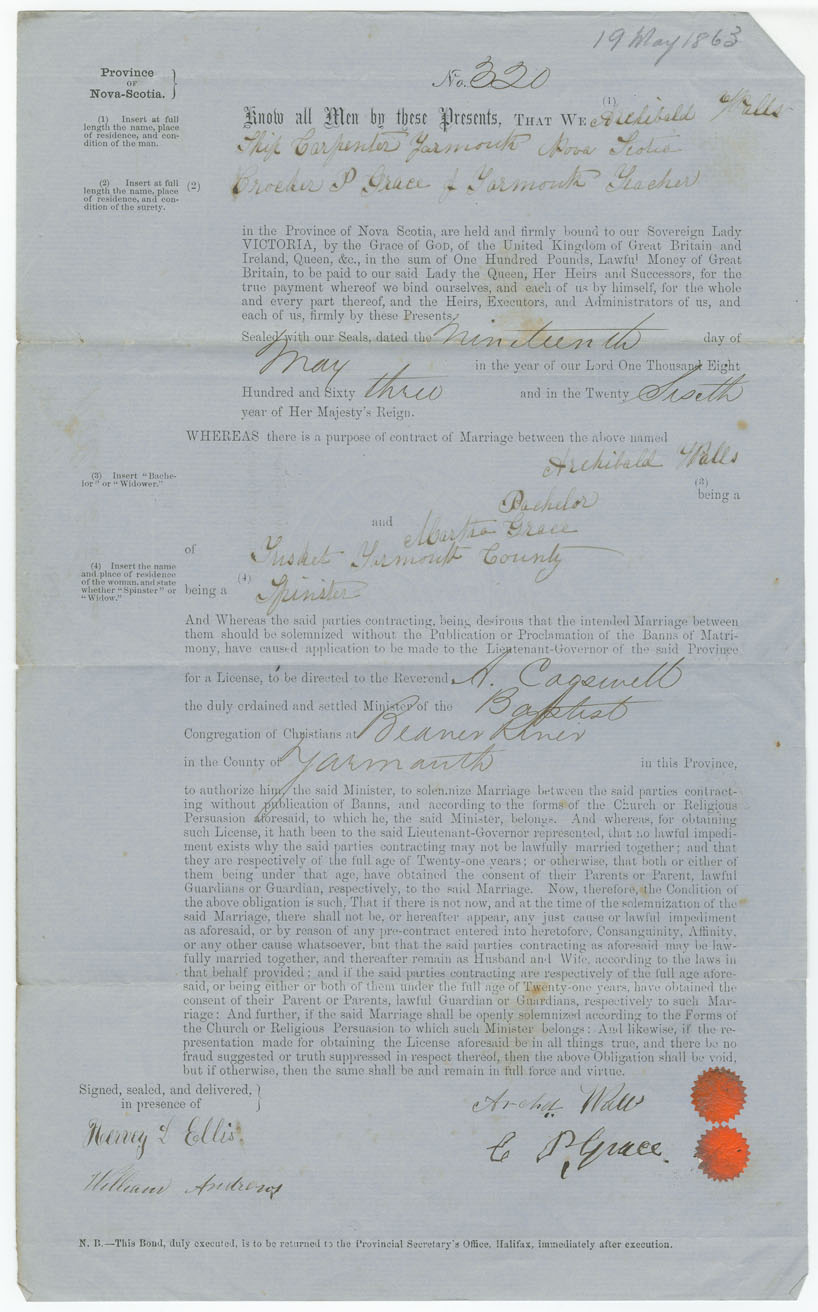 19 May 1863
Province
OF
Nova-Scotia.
No. 320
(1) Insert at full
length the name, place
of residence, and con-
dition of the man.
Know all Men by these Presents, THAT WE (1) Archibald Walls
Ship Carpenter Yarmouth Nova Scotia
(2) Insert at full
length the name, place
of residence, and con-
dition of the surety.
(2) Crocker P Grace of Yarmouth Teacher
in the Province of Nova Scotia, are held and firmly bound to our Sovereign Lady
VICTORIA, by the Grace of GOD, of the United Kingdom of Great Britain and
Ireland, Queen, &c., in the sum of One Hundred Pounds, Lawful Money of Great
Britain, to be paid to our said Lady the Queen, Her Heirs and Successors, for the
true payment whereof we bind ourselves, and each of us by himself, for the whole
and every part thereof, and the Heirs, Executors, and Administrators of us, and
each of us, firmly by these Presents.
Sealed with our Seals, dated the Nineteenth day of
May in the year of our Lord One Thousand Eight
Hundred and Sixty three and in the Twenty Sixth
year of Her Majesty's Reign.
WHEREAS there is a purpose of contract of Marriage between the above named
Archibald Walls
(3) Insert "Bache-
lor" or "Widower."
(3)
Bachelor being a
and Martha Grace
of Tusket Yarmouth County
(4) Insert the name
and place of residence
of the woman, and state
whether "Spinster" or
"Widow."
being a (4) Spinster
And Whereas the said parties contracting, being desirous that the intended Marriage between
them should be solemnized without the Publication or Proclamation of the Banns of Matri-
mony, have caused application to be made to the Lieutenant-Governor of the said Province
for a License, to be directed to the Reverend A. Cogswell
the duly ordained and settled Minister of the Baptist
Congregation of Christians at Beaver River
in the County of Yarmouth in this Province,
to authorize him, the said Minister, to solemnize Marriage between the said parties contract-
ing without publication of Banns, and according to the forms of the Church or Religious
Persuasion aforesaid, to which he, the said Minister, belongs. And whereas, for obtaining
such License, it hath been to the said Lieutenant-Governor represented, that no lawful impedi-
ment exists why the said parties contracting may not be lawfully married together; and that
they are respectively of the full age of Twenty-one years; or otherwise, that both or either of
them being under that age, have obtained the consent of their Parents or Parent, lawful
Guardians or Guardian, respectively, to the said Marriage. Now, therefore, the Condition of
the above obligation is such, That if there is not now, and at the time of the solemnization of the
said Marriage, there shall not be, or hereafter appear, any just cause or lawful impediment
as aforesaid, or by reason of any pre-contract entered into heretofore, Consanguinity, Affinity,
or any other cause whatsoever, but that the said parties contracting as aforesaid may be law-
fully married together, and thereafter remain as Husband and Wife, according to the laws in
that behalf provided; and if the said parties contracting are respectively of the full age afore-
said, or being either or both of them under the full age of Twenty-one years, have obtained the
consent of their Parent or Parents, lawful Guardian or Guardians, respectively to such Mar-
riage: And further, if the said Marriage shall be openly solemnized according to the Forms of
the Church or Religious Persuasion to which such Minister belongs: And likewise, if the re-
presentation made for obtaining the License aforesaid be in all things true, and there be no
fraud suggested or truth suppressed in respect thereof, then the above Obligation shall be void,
but if otherwise, then the same shall be and remain in full force and virtue.
Signed, sealed, and delivered,
in presence of
Archd. Walls
Hervey D Ellis.
C P Grace.
William Andrews
N. B.—This Bond, duly executed, is to be returned to the Provincial Secretary's Office, Halifax, immediately after execution.